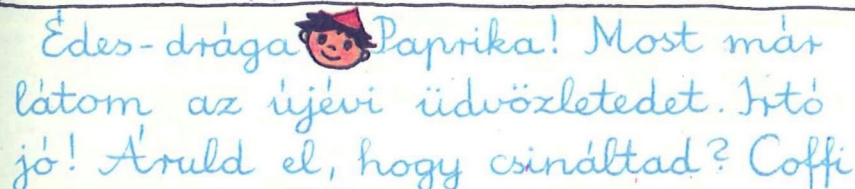 Édes-drága Paprika! Most már
látom az újévi üdvözletedet. Irtó
jó! Áruld el, hogy csináltad? Coffi